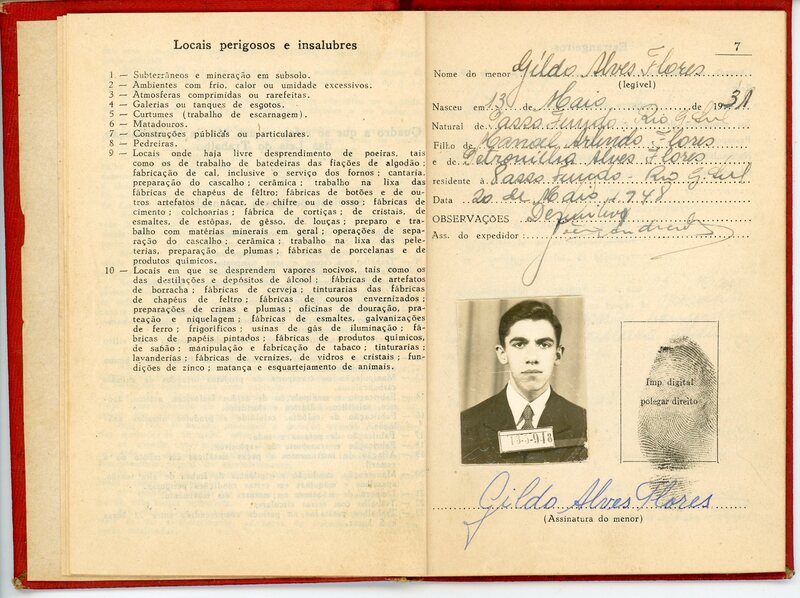 Locais perigosos e insalubres
1 — Subterrâneos e mineração em subsolo.
2 — Ambientes com frio, calor ou umidade excessivos.
3 — Atmosferas comprimidas ou rarefeitas.
4 — Galerias ou tanques de esgotos.
5 — Curtumes (trabalho de escarnagem).
6 — Matadouros.
7 — Construções públicas ou particulares.
8 — Pedreiras.
9 — Locais onde haja livre desprendimento de poeiras, tais
como os de trabalho de batedeiras das fiações de algodão;
fabricação de cal, inclusive o serviço dos fornos; cantaria,
preparação do cascalho; cerâmica; trabalho na lixa das
fábricas de chapéus de fêltro; fábricas de botões e de ou-
tros artefatos de nácar, de chifre ou de osso; fábricas de
cimento; colchoarias; fábrica de cortiças; de cristais, de
esmaltes, de estôpas, de gêsso, de louças; preparo e tra-
balho com matérias minerais em geral; operações de sepa-
ração do cascalho; cerâmica; trabalho na lixa das pele-
terias, preparação de plumas; fábricas de porcelanas e de
produtos químicos.
10 — Locais em que se desprendem vapores nocivos, tais como os
das destilações e depósitos de álcool; fábricas de artefatos
de borracha; fábricas de cerveja; tinturarias das fábricas
de chapéus de feltro; fábricas de couros envernizados;
preparações de crinas e plumas; oficinas de douração, pra-
teação e niquelagem; fábricas de esmaltes, galvanizações
de ferro; frigoríficos; usinas de gás de iluminação; fá-
bricas de papéis pintados; fábricas de produtos químicos,
de sabão; manipulação e fabricação de tabaco; tinturarias;
lavanderias; fábricas de vernizes, de vidros e cristais; fun-
dições de zinco; matança e esquartejamento de animais.
7
Nome do menor Gildo Alves Flores
(legível)
Nasceu em 13 de Maio de 1931
Natural de Passo Fundo - Rio G. Sul
Filho de Manoel Arlindo Flores
e de Petronilha Alves Flores
residente a Passo Fundo - Rio G. Sul
Data 20 de Maio 1948
OBSERVAÇÕES Definitivo
Ass. do expedidor :
13-5-948
Imp. digital
polegar direito
Gildo Alves Flores
(Assinatura do menor)